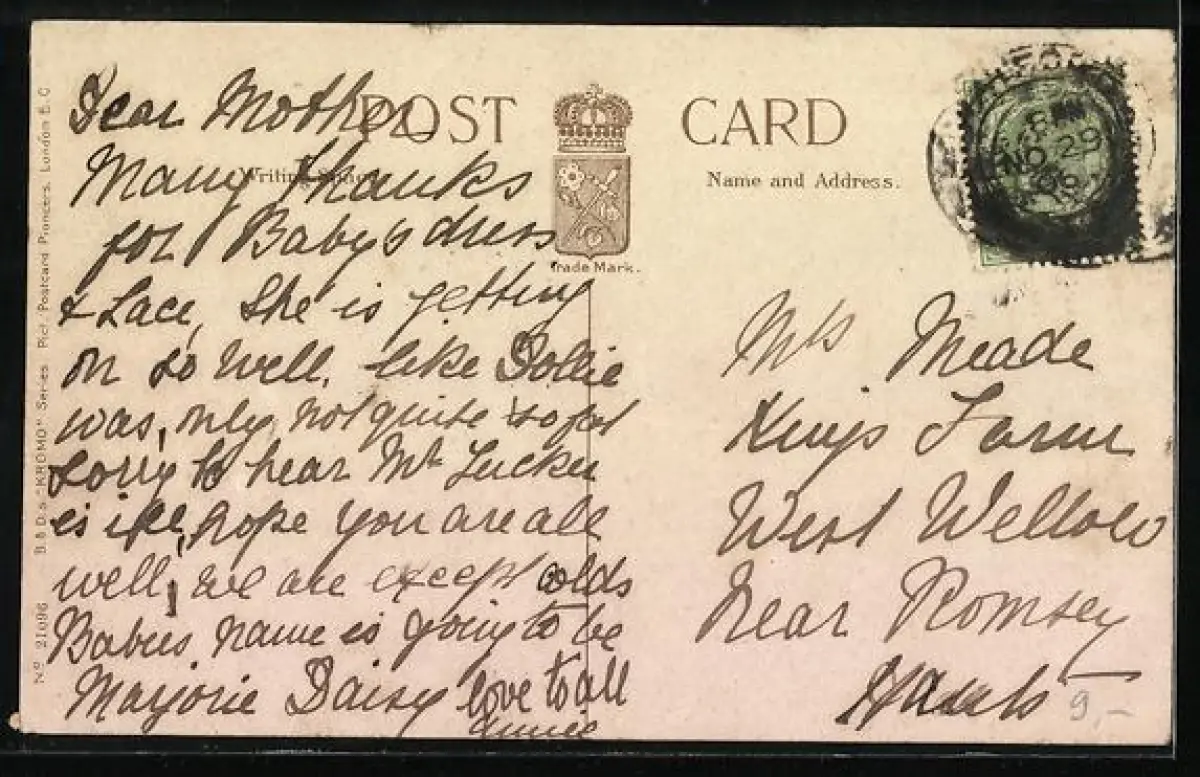 POST CARD
Writing Space.
Name and Address.
Trade Mark.
Dear Mother
Many thanks
for Baby's dress
& Lace, She is getting
on so well, like Dollie
was, only not quite so fat
Sorry to hear Mr Tucker
is ill, hope you are all
well, we are except colds
Babies name is going to be
Marjorie Daisy love to all
Annie
Mrs Meade
Kings Farm
West Wellow
Near Romsey
Hants
8 PM
NO 29
9,-
No 21096 B & D's "KROMO" Series. Pict Postcard Pioneers, London E.C